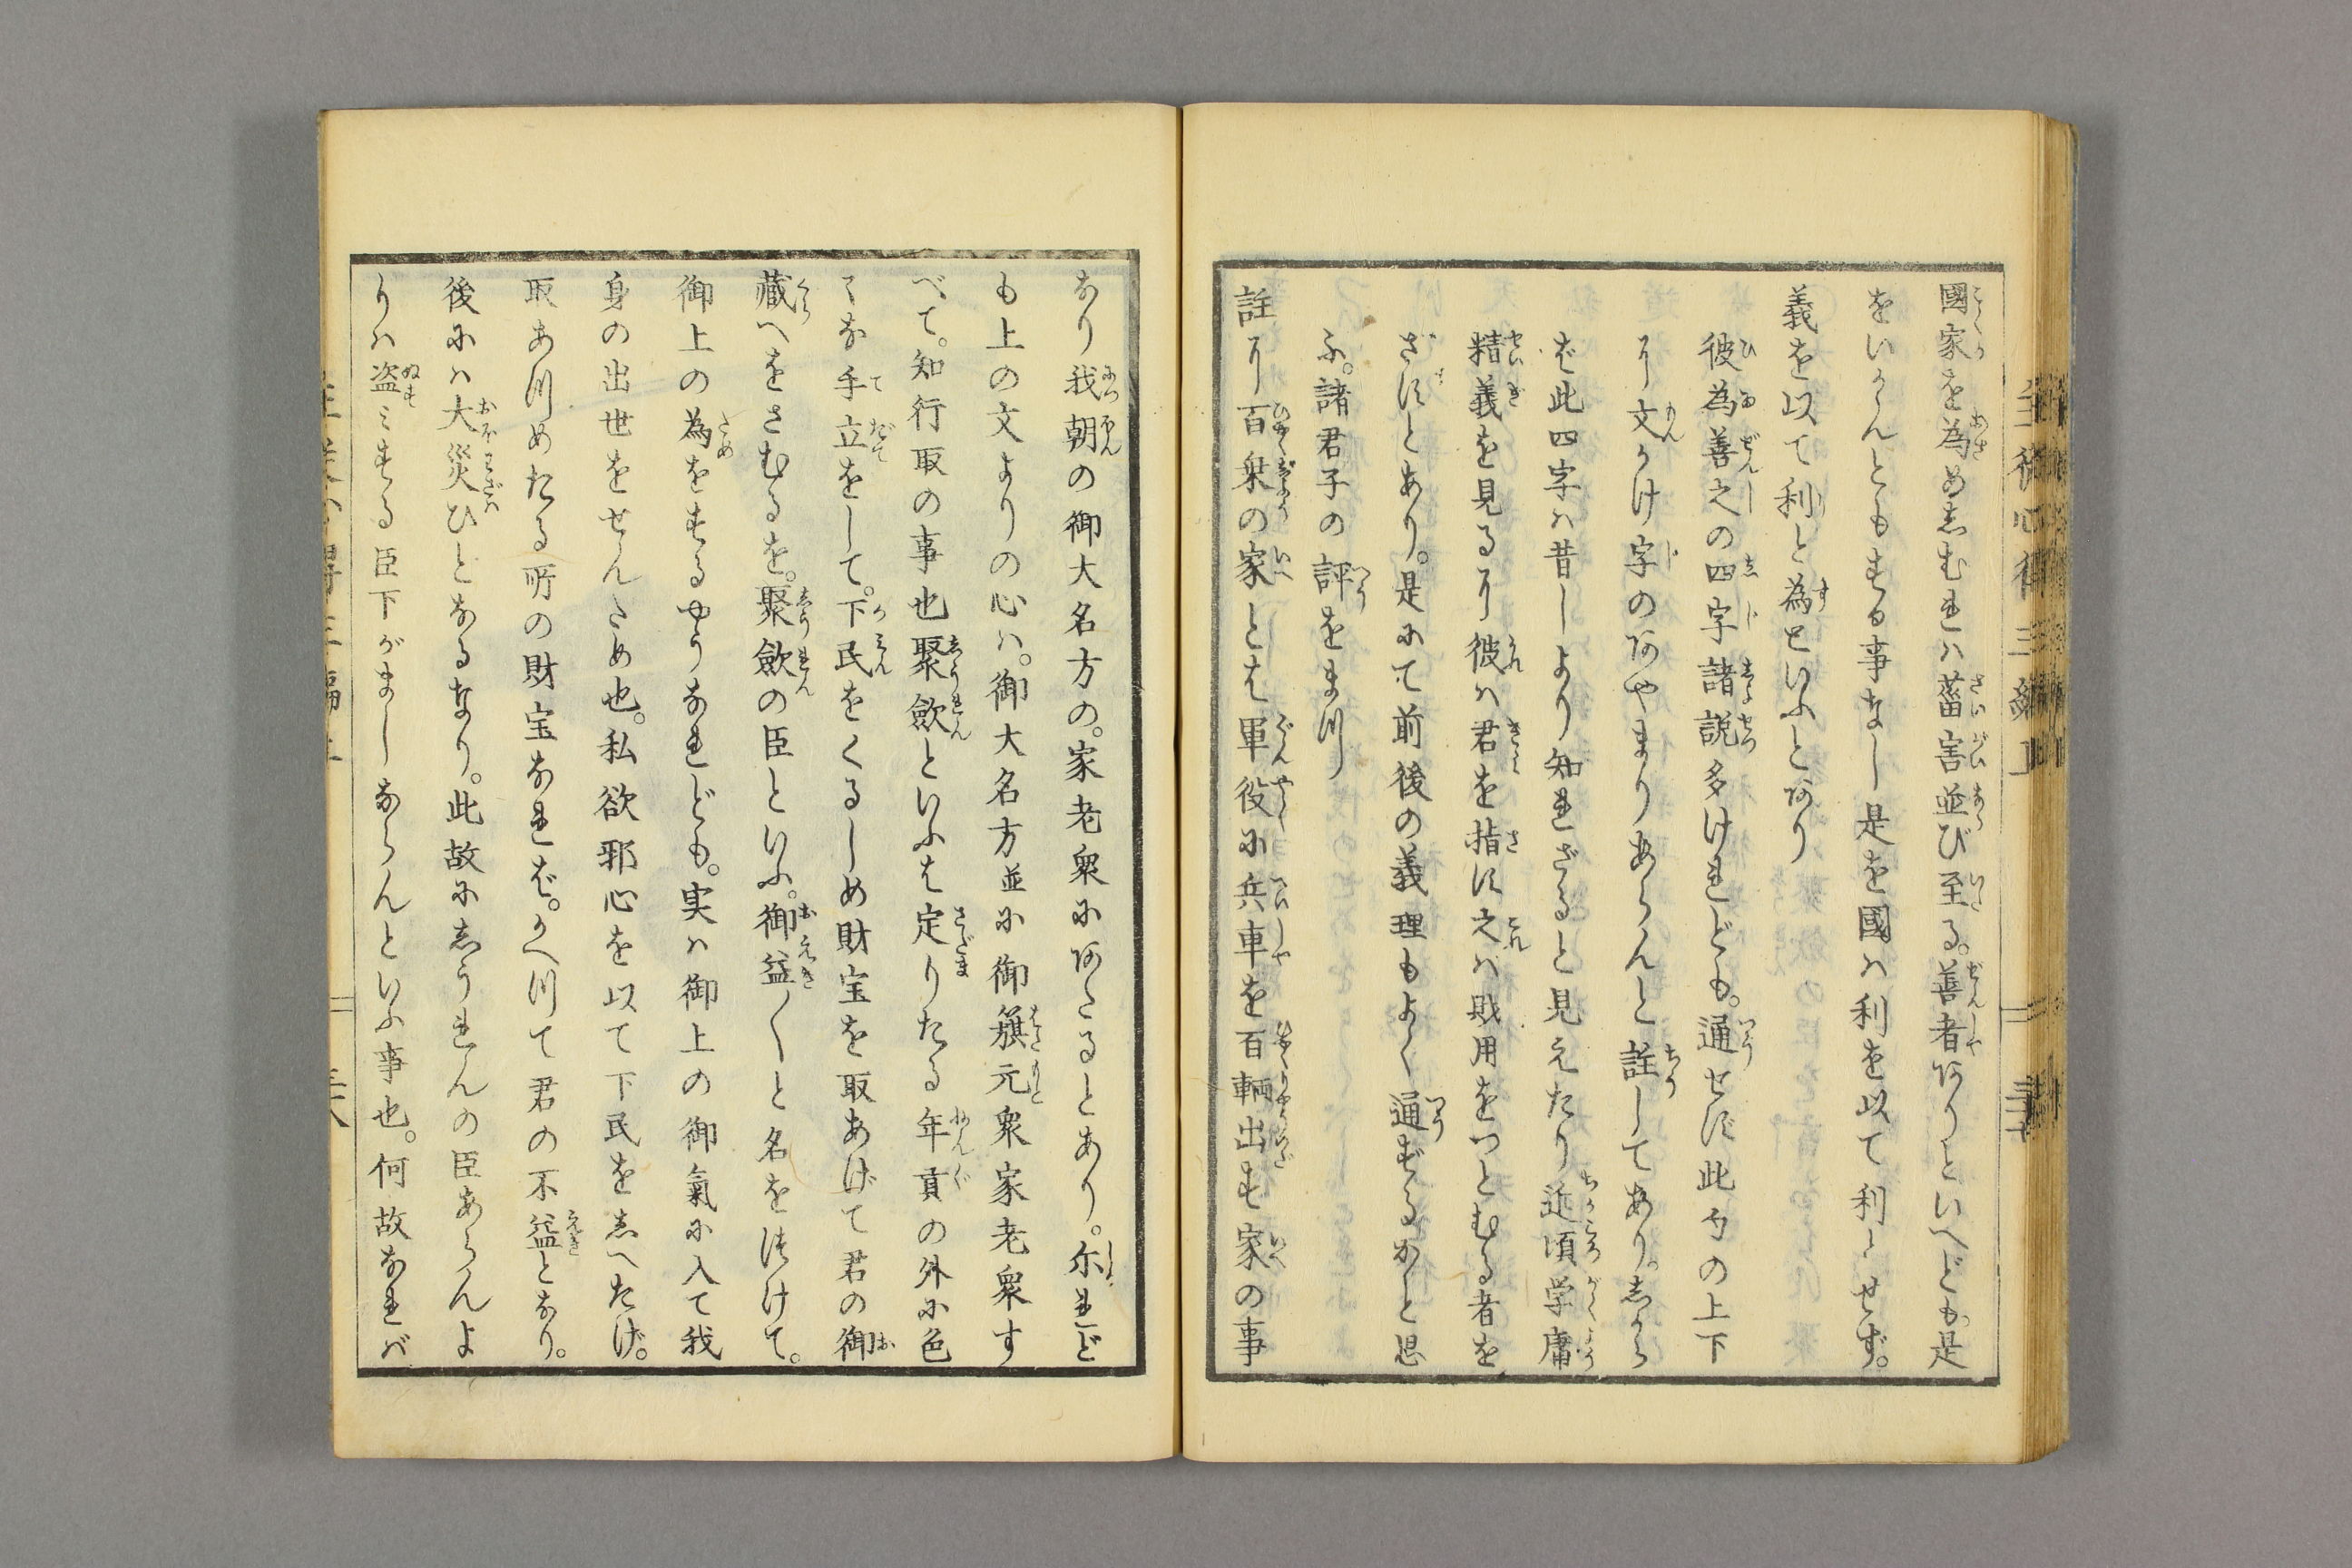 國家を為めしむれハ菑害並び至る。善者ありといへども。是
をいかんともする事なし是を國ハ利を以て利とせず。
義を以て利と為といふとあり
彼為善之の四字諸説多けれども。通せず此やの上下
に文かけ字のあやまりあらんと註してあり。しから
ば此四字ハ昔しより知れざると見えたり近頃学庸
精義を見るに彼ハ君を指す之ハ財用をつとむる者を
さすとあり。是にて前後の義理もよく通ずるかと思
ふ。諸君子の評をまつ
註に百乗の家とは軍役に兵車を百輌出す家の事
なり我朝の御大名方の。家老衆にあたるとあり。尓れど
も上の文よりの心ハ。御大名方並に御籏元衆家老衆す
べて。知行取の事也聚歛といふは定りたる年貢の外に色
〻な手立をして。下民をくるしめ財宝を取あげて君の御
蔵へをさむるを。聚歛の臣といふ。御益〳〵と名を付けて。
御上の為をするやうなれども。実ハ御上の御氣に入て我
身の出世をせんため也。私欲邪心を以て下民をしへたげ。
取あつめたる所の財宝なれば。かへつて君の不益となり。
後にハ大災ひとなるなり。此故にしうれんの臣あらんよ
りハ盗ミする臣下がましならんといふ事也。何故なれバ